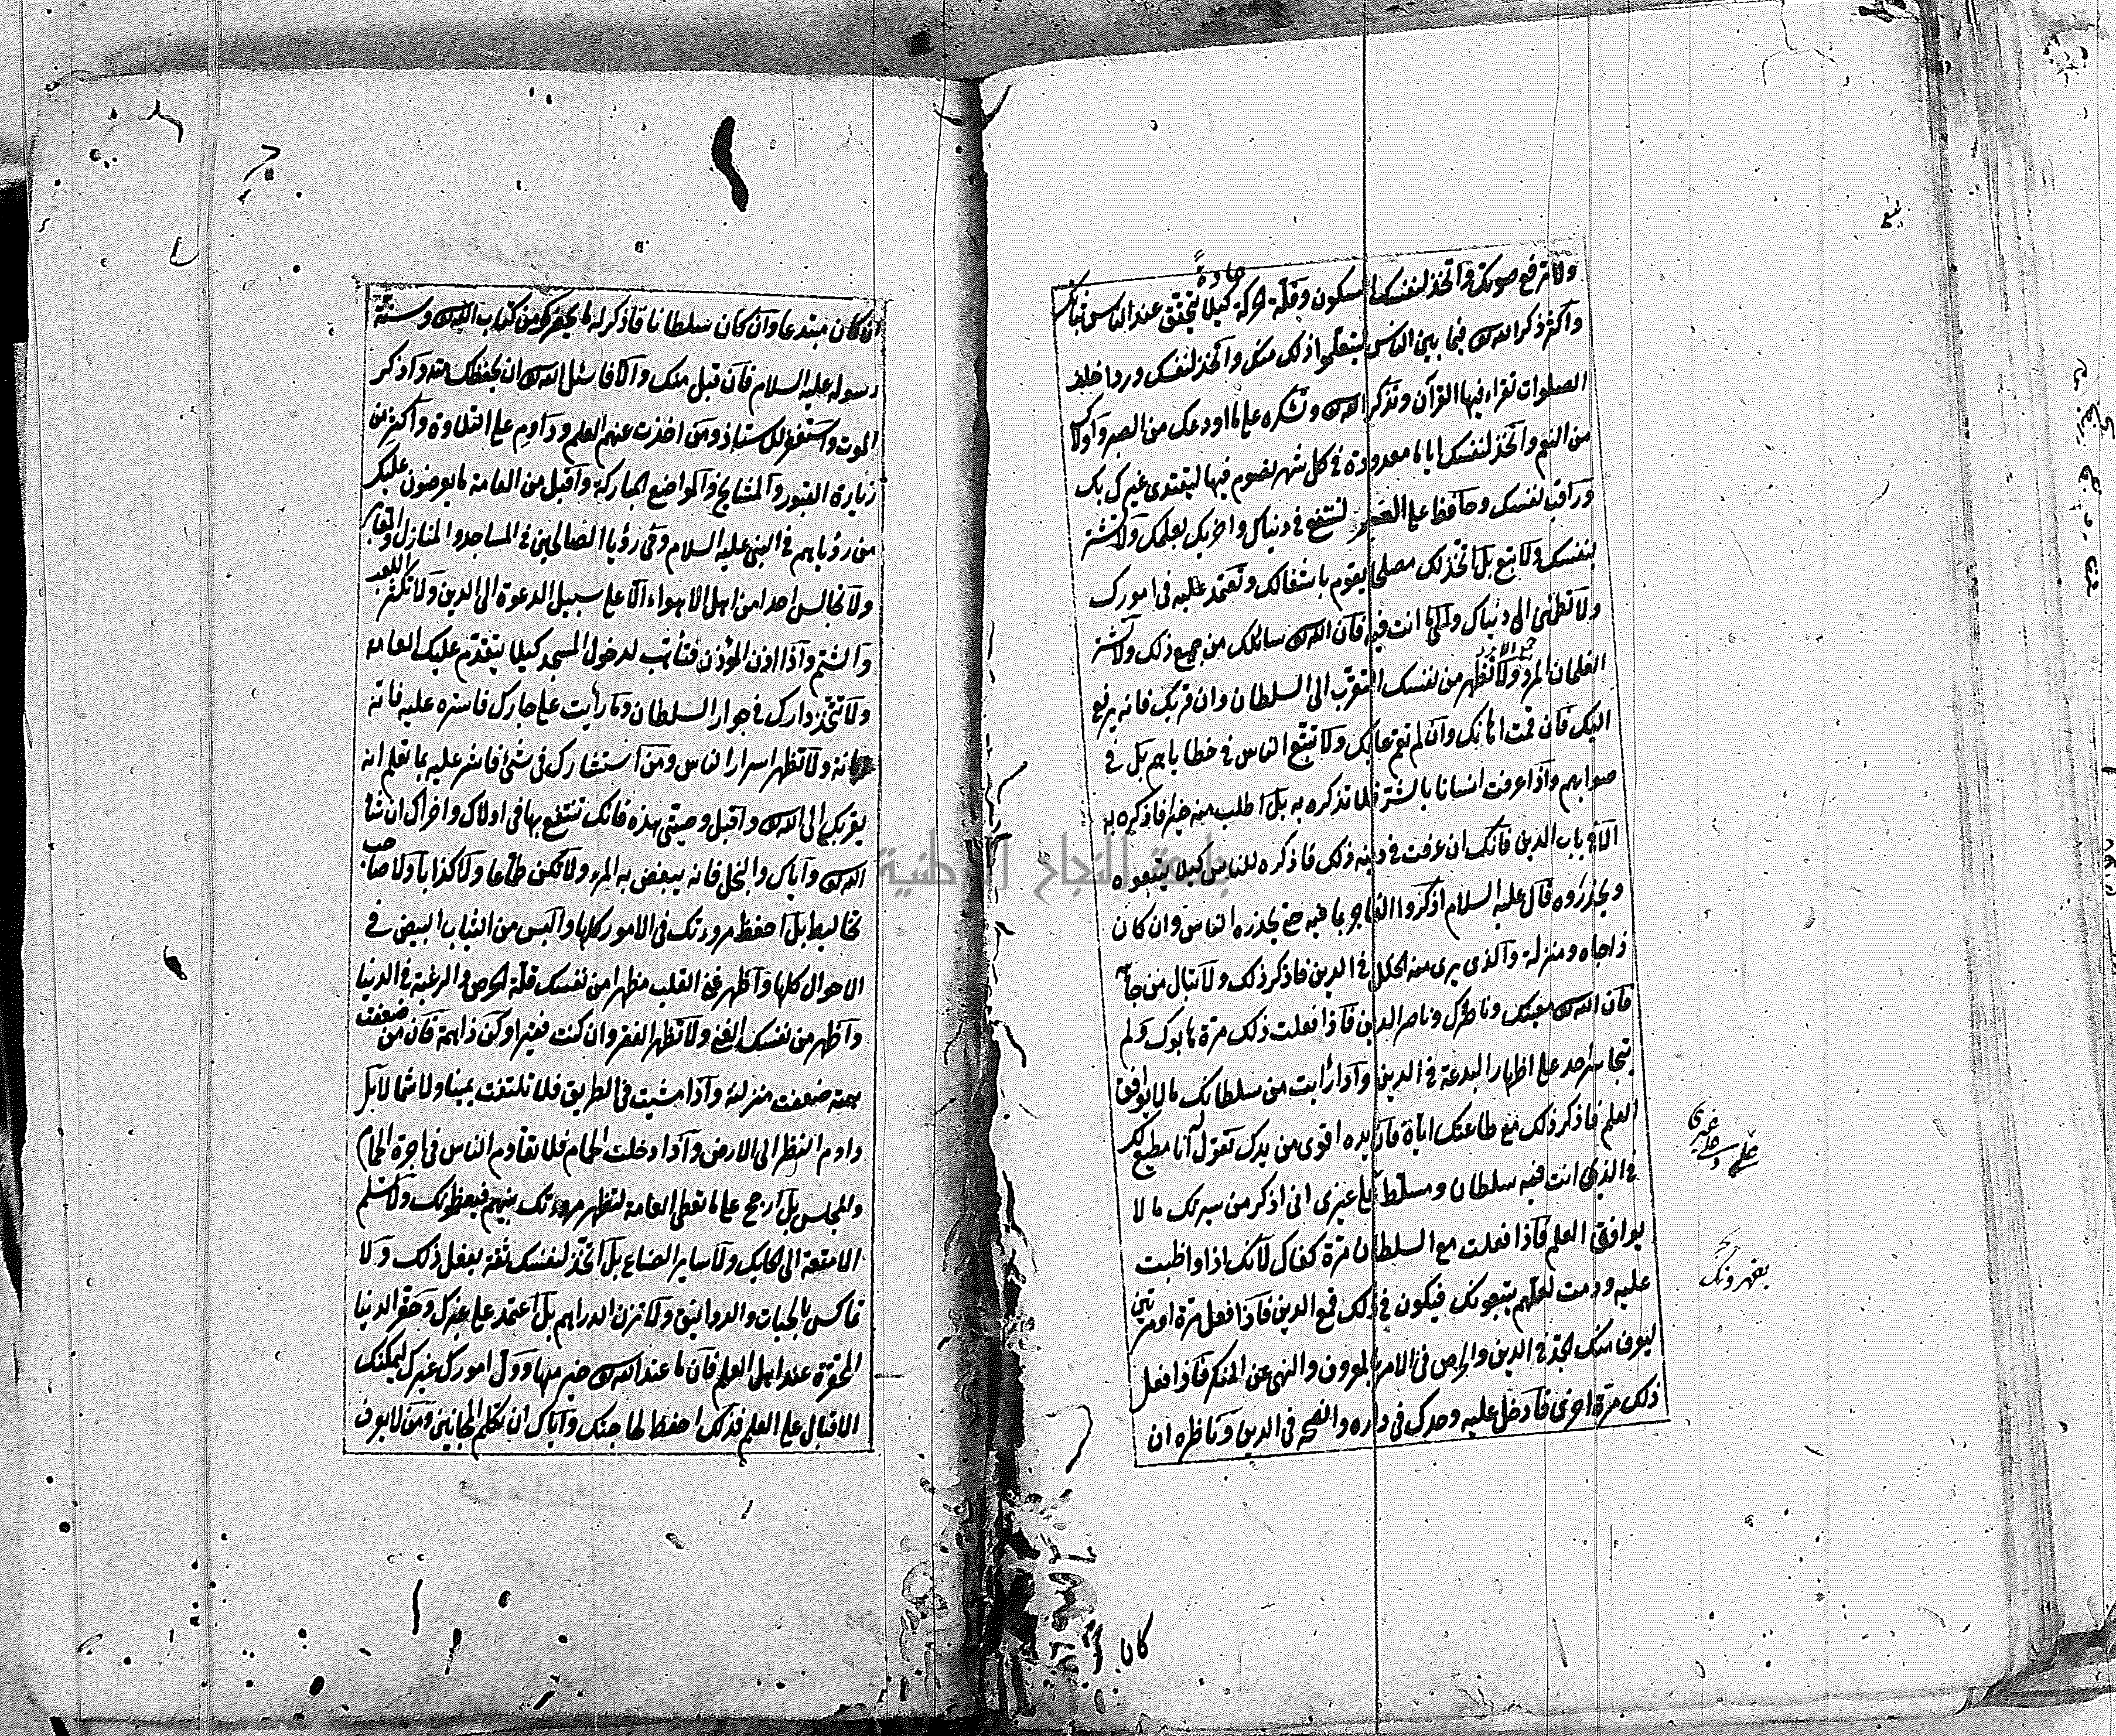 ولا ترفع صوتك واتخذ لنفسك السكون وقلة الحركة عادة كيلا يتحقق عند الناس ثباتك
واكثر ذكر الله تعالى فيما بين الناس ليتعلموا ذلك منك واتخذ لنفسك وردا خلف
الصلوات تقراء فيها القرآن وتذكر الله تعالى وتشكره على ما اودعك من الصبر واولاك
من النعم واتخذ لنفسك اياما معدودة في كل شهر تصوم فيها ليقتدى غيرك بك
وراقب نفسك وحافظ على الغير لتنتفع في دنياك واخرتك بعلمك ولا تشتر
بنفسك ولا تبع بل اتخذ لك مصلحا يقوم باشغالك وتعتمد عليه في امورك
ولا تطمئن الى دنياك والى ما انت فيه فان الله تعالى سائلك من جميع ذلك ولا تشتر
الغلمان المرد ولا تظهر من نفسك التقرب الى السلطان وان قربك فانه يرفع
اليك فان قمت اهانك وان لم تقم عابك ولا تتبع الناس في خطاياهم بل في
صوابهم واذا عرفت انسانا بالشر فلا تذكره به بل اطلب منه خيرا فاذكره به
الا في باب الدين فانك ان عرفت في دينه ذلك فاذكره للناس كيلا يتبعوه
ويحذروه قال عليه السلام اذكروا الفاجر بما فيه حتى يحذره الناس وان كان
ذا جاه ومنزلة والذي يرى منه الخلل في الدين فاذكر ذلك ولا تبال من جاهه
فان الله تعالى معينك وناصرك وناصر الدين فاذا فعلت ذلك مرة هابوك ولم
يتجاسر احد على اظهار البدعة في الدين واذا رأيت من سلطانك ما لا يوافق
العلم فاذكر ذلك مع طاعتك اياه فان يده اقوى من يدك تقول انا مطيع لك
في الذي انت فيه سلطان ومسلط على غيرى انى اذكر من سيرتك ما لا
يوافق العلم فاذا فعلت مع السلطان مرة كفاك لانك اذا واظبت
عليه ودمت لعلهم يتبعونك فيكون في ذلك قمع الدين فاذا فعل مرة او مرتين
ليعرف منك الجد في الدين والحرص في الامر بالمعروف والنهي عن المنكر فاذا فعل
ذلك مرة اخرى فادخل عليه وحدك في داره وانصحه في الدين وناظره ان
على غيرى
يقهرونك
كان
ان كان مبتدعا وان كان سلطانا فاذكر له ما يحضرك من كتاب الله تعالى وسنة
رسوله عليه السلام فان قبل منك والا فاسئل الله تعالى ان يحفظك منه واذكر
الموت واستغفر للاستاذ ومن اخذت عنهم العلم وداوم على التلاوة واكثر من
زيارة القبور والمشايخ والمواضع المباركة واقبل من العامة ما يعرضون عليك
من رؤياهم في النبى عليه السلام وفي رؤيا الصالحين في المساجد والمنازل والمقابر
ولا تجالس احدا من اهل الاهواء الا على سبيل الدعوة الى الدين ولا تكثر اللعب
والشتم واذا اذن المؤذن فتأهب لدخول المسجد كيلا يتقدم عليك العامة
ولا تتخذ دارك في جوار السلطان وما رأيت على جارك فاستره عليه فانه
امانة ولا تظهر اسرار الناس ومن استشارك في شئ فاشر عليه بما تعلم انه
يقربك الى الله تعالى واقبل وصيتى هذه فانك تنتفع بها في اولاك واخراك ان شاء
الله تعالى واياك والبخل فانه يبغض به المرء ولا تكن طماعا ولا كذابا ولا صاحب
تخاليط بل احفظ مروءتك في الامور كلها والبس من الثياب البيض في
الاحوال كلها واظهر غنى القلب مظهرا من نفسك قلة الحرص والرغبة في الدنيا
واظهر من نفسك الغنى ولا تظهر الفقر وان كنت فقيرا وكن ذا همة فان من ضعفت
همته ضعفت منزلته واذا مشيت في الطريق فلا تلتفت يمينا ولا شمالا بل
داوم النظر الى الارض واذا دخلت الحمام فلا تقاوم الناس في اجرة الحمام
والمجلس بل ارجح على ما تعطى العامة لتظهر مروءتك بينهم فيعظمونك ولا تسلم
الامتعة الى الحائك ولا سائر الصناع بل اتخذ لنفسك ثقة يفعل ذلك ولا
تماكس بالحبات والدوانيق ولا تزن الدراهم بل اعتمد على غيرك وحقر الدنيا
المحقرة عند اهل العلم فان ما عند الله تعالى خير منها وول امورك غيرك ليمكنك
الاقبال على العلم فذلك احفظ لحاجتك واياك ان تكلم المجانين ومن لا يعرف
جامعة النجاح الوطنية